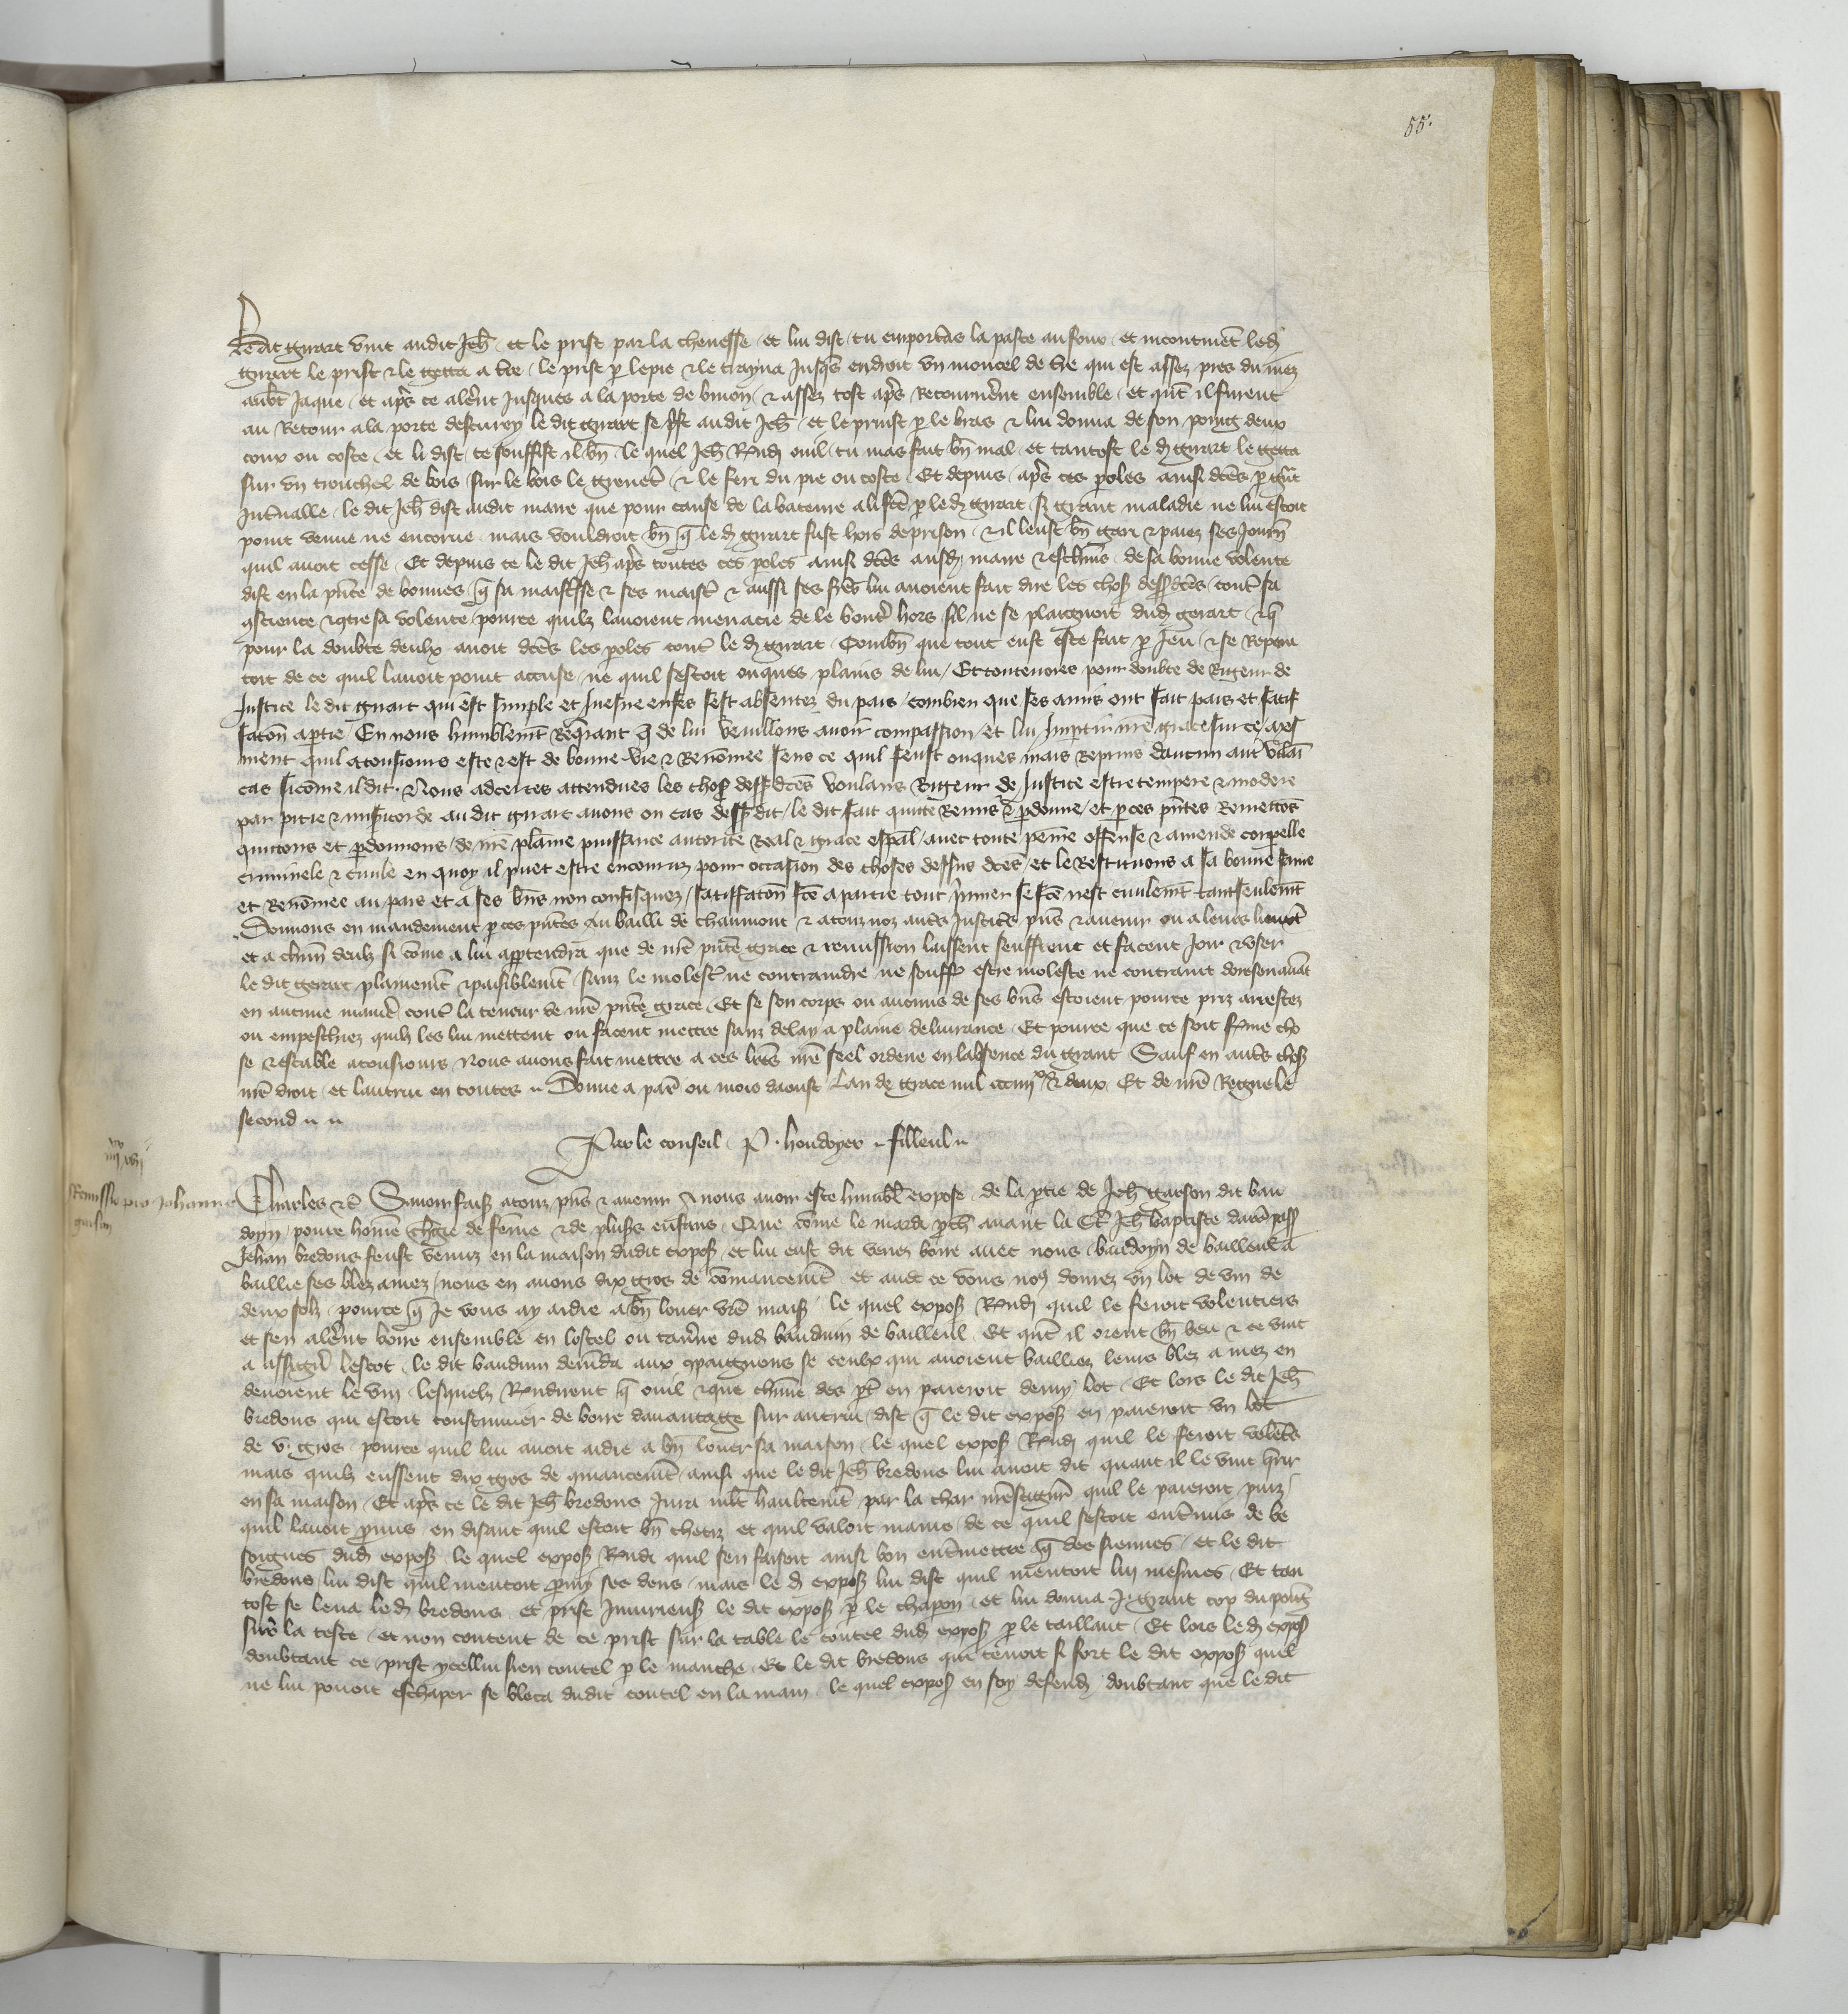 55.
ledit girart vint audit Jeh̄ et le prist par la chevesse et lui dist tu emportas la paste au four et incontinēt led
girart le prist & le getta a t̄re le prist p le pie & le trayna jusqs endroit un moncel de
Jaque et ap̄s ce alerēt jusques a la porte de & assez tost ap̄s retournerēt ensemble et qūt il furent
au retour a la porte le dit girart audit Jeh̄ et le prinst p le bras & lui donna de son poing deux
coux ou coste et li dist te souffist il bn̄ le quel Jeh̄ Rn̄di ouil tu mas fait bn̄ mal et tantost le d girart le getta
sur un tronchel de bois sur le bois le & le feri du pie ou coste Et depuis ap̄s ces poles ainsi dc̄es p
Intvalle le dit Jeh̄ dist audit maire que pour cause de la bateure a li fc̄e p led girart grant maladie ne lui estoit
point venue ne encorue mais vouldroit bn̄ q̄ le d girart fust hors de prison & il leust bn̄ gari & paiez ses Journ̄
quil avoit cesse Et depuis ce le dit Jeh̄ ap̄s toutes ces poles ainsi dc̄es ausd maire & eschevīs de sa bonne volente
dist en la pn̄ce de bonnes q̄ sa maistsse & ses maist & aussi ses lui avoient fait dire les chos dc̄es cont sa
9science & 9tre sa volente pource quilz lavoient menacie de le bouter hors sil ne se plaignoit dud gerart & q̄
pour la doubte deulx avoit dc̄es les poles cont le d girart Combn̄ que tout eust este fait p Jeu & se Repen
toit de ce quil lavoit point accuse ne quil sestoit onques plains de lui Et toutevoies pour doubte de Rigeur de
Justice le dit girart qui est simple et Juesne enfes sest absentez du pais combien que ses amis ont fait pais et satif
facōn a ptie En nous humblemt Requerant q̄ de lui veuillons avoir compassion et lui Impartir nr̄e grace sur ce
ment quil a tousjours este & est de bonne vie & Renōmee sens ce quil feust onques mais Reprins daucun autre vilaī
cas sicōme il dit. Nous adcertes attendues les chos dess dc̄es voulans Rigeur de Justice estre tempere & modere
par pitie & misicorde au dit girart avons ou cas dess dit le dit fait quitte Remis & pdonne et p ces pn̄tes Remettōs
quittons et pdonnons de nr̄e plaine puissance autorite Real & grace esp̄al avec toute peine offense & amende corpelle
criminele & civile en quoy il puet estre encouruz pour occasion des choses dessus dc̄es et le Restituons a sa bonne fame
et Renōmee au pais et a ses bn̄s non confisquez satiffacōn fc̄e a partie tout p̄mier se fc̄e nest civilemt tantseulemt
Donnons en mandement p ces pn̄tes Au bailli de chaumont & a touz noz auts Justiciers pn̄s & avenir ou a leurs lieuxt
et a chūn deulz si cōme a lui apptendra que de nr̄e pn̄te grace & remission laissent seuffrent et facent Joir & user
le dit gerart plainemt & paisiblemt sanz le molest ne contraindre ne souff estre moleste ne contraint doresenavāt
en aucune manier cont la teneur de nr̄e pn̄te grace Et se son corps ou aucuns de ses bn̄s estoient pource priz arrestez
ou empeschiez quilz les lui mettent ou facent mettre sanz delay a plaine delivrance Et pource que ce soit fme cho
se & estable a tousjours Nous avons fait mettre a ces lr̄es nr̄e seel ordene en labsence du grant Sauf en auts chos
nr̄e droit et lautrui en toutes Donne a paris ou mois daoust Lan de grace mil & deux Et de nr̄e Regne le
second
Par le conseil P. houdoyer filleul
Remissio pro Johanne garson
Charles &c Savoir fais a touz pn̄s & avenir A nous avoir este humbl̄ expose de la ptie de Jeh̄ garson dit bau
doyn povre homē chgie de feme & de plus enfans Que cōme le mardi pch avant la St Jeh̄ baptiste darr̄ pass
Jehan bredous feust venuz en la maison dudit expos et lui eust dit venez boire avec nous baudoyn de bailleul a
baillie ses blez a mez nous en avons dix gros de cōmancemt et avec ce vous nous donrez un lot de vin de
deux solz pource q̄ Je vous ay aidie a bn̄ louer vr̄e mais le quel expos Rn̄di quil le feroit volentiers
et sen alerēt boire ensemble en lostel ou taverne dud bauduin de bailleul Et qūt il orent bn̄ beu & ce vint
a lescot le dit bauduin demāda aux 9paignons se ceulx qui avoient bailliez leurs blez a mez en
devoient le vin lesquelx Rn̄dirent q̄ ouil & que chūne des pt en paieroit demy lot Et lors le dit Jeh̄
bredous qui estoit coustumier de boire davantage sur autrui dist q̄ le dit expos en paieroit un lot
de v. gros pource quil lui avoit aidie a bn̄ louer sa maison le quel expos Rn̄di quil le feroit volent̄s
mais quilz eussent dix gros de 9mancemt ainsi que le dit Jeh̄ bredous lui avoit dit quant il le vint querir
en sa maison Et ap̄s ce le dit Jeh̄ bredous Jura mlt haultemt par la char quil le paieroit puiz
quil lavoit pmis en disant quil estoit bn̄ chetiz et quil valoit mains de ce quil sestoit entremis de be
soignes dud expos le quel expos Rn̄di quil sen faisoit aussi bon entmettre q̄ des siennes et le dit
bredous lui dist quil mentoit pmy ses dens mais le d expos lui dist quil mentoit luy mesmes Et tan
tost se leva led bredous et prist Injurieus le dit expos p le chapon et lui donna .i. grant cop du poing
sur la teste et non content de ce prist sur la table le coutel dud expos p le taillant Et lors led expos
doubtant ce prist ycellui sien coutel p le manche Et le dit bredous qui tenoit si fort le dit expos quil
ne lui povoit eschaper se bleca dudit coutel en la main le quel expos en soy defend doubtant que le dit